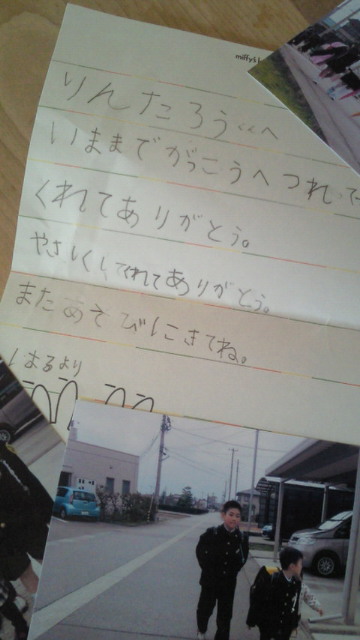 miffy
りんたろうくんへ
いままでがっこうへつれって
くれてありがとう。
やさしくしてくれてありがとう。
またあそびにきてね。
はるより